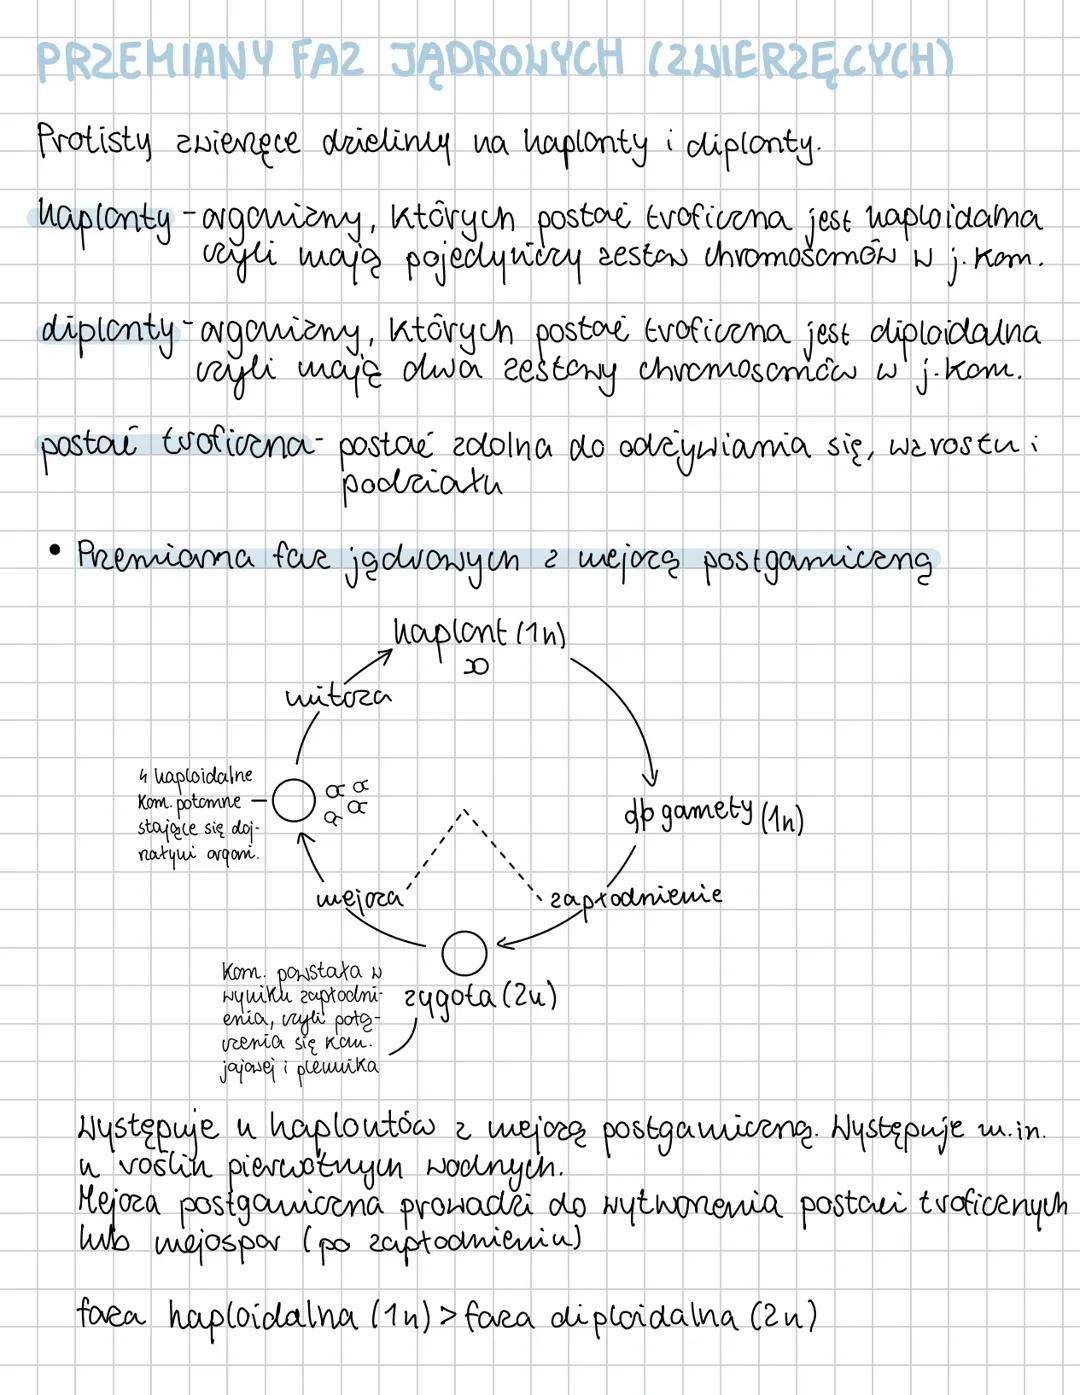 PRZEMIANY FAZ JĄDROWYCH (ZWIERZĘCYCH)
Protisty zwierzęce dzielimy na haplonty i diplonty.
haplonty - organizmy, których postać troficzna jest haploidalna
czyli mają pojedynczy zestaw chromosomów w j. kom.
diplonty - organizmy, których postać troficzna jest diploidalna
czyli mają dwa zestawy chromosomów w j. kom.
postać troficzna - postać zdolna do odżywiania się, wzrostu i
podziału
• Przemiana faz jądrowych z mejozą postgamiczną
haplont (1n)
mitoza
4 haploidalne
kom. potomne
stające się doj-
rzałymi organi.
gamety (1n)
mejoza
zapłodnienie
kom. powstała w
wyniku zapłodni-
enia, czyli połą-
czenia się kom.
jajowej i plemnika
zygota (2n)
Występuje u haplontów z mejozą postgamiczną. Występuje m.in.
u roślin pierwotnych wodnych.
Mejoza postgamiczna prowadzi do wytworzenia postaci troficznych
lub mejospor (po zapłodnieniu)
faza haploidalna (1n) > faza diploidalna (2n)